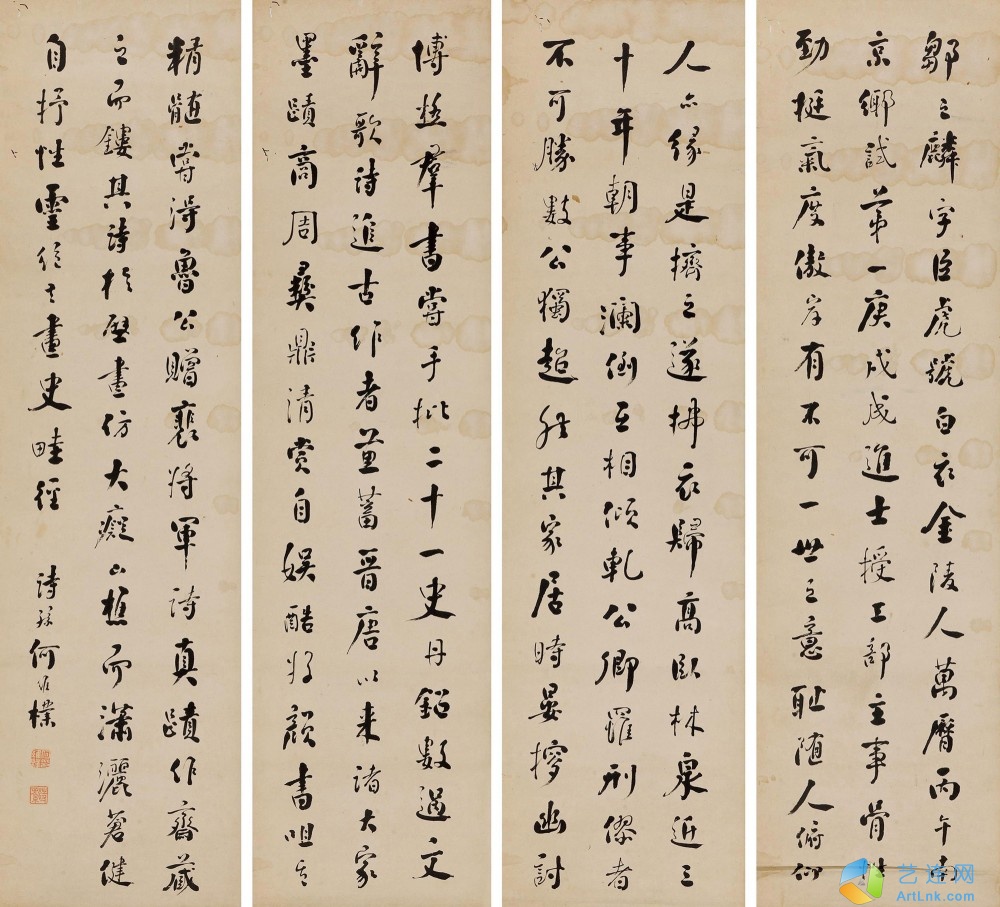 鄒之麟字臣虎號白衣金陵人萬曆丙午南
京鄉試第一庚戌成進士授工部主事骨性
勁挺氣度傲岸有不可一世之意恥随人俯仰
人亦緣是擠之遂拂衣歸高臥林泉近三
十年朝事瀾倒互相傾軋公卿羅刑僇者
不可勝數公獨超然其家居時晏搜幽討
博極羣書嘗手批二十一史丹鉛數過文
辭歌詩進古作者並蓄晋唐以来諸大家
墨蹟商周彝鼎清赏自娱酷好顏書咀其
精髓嘗得魯公贈裴将軍詩真蹟作齋藏
之而鏤其詩於壁畫仿大癡山樵而瀟灑蒼健
自抒性靈絕去畫史畦徑
詩孫何維樸
艺连网
ArtLnk.com